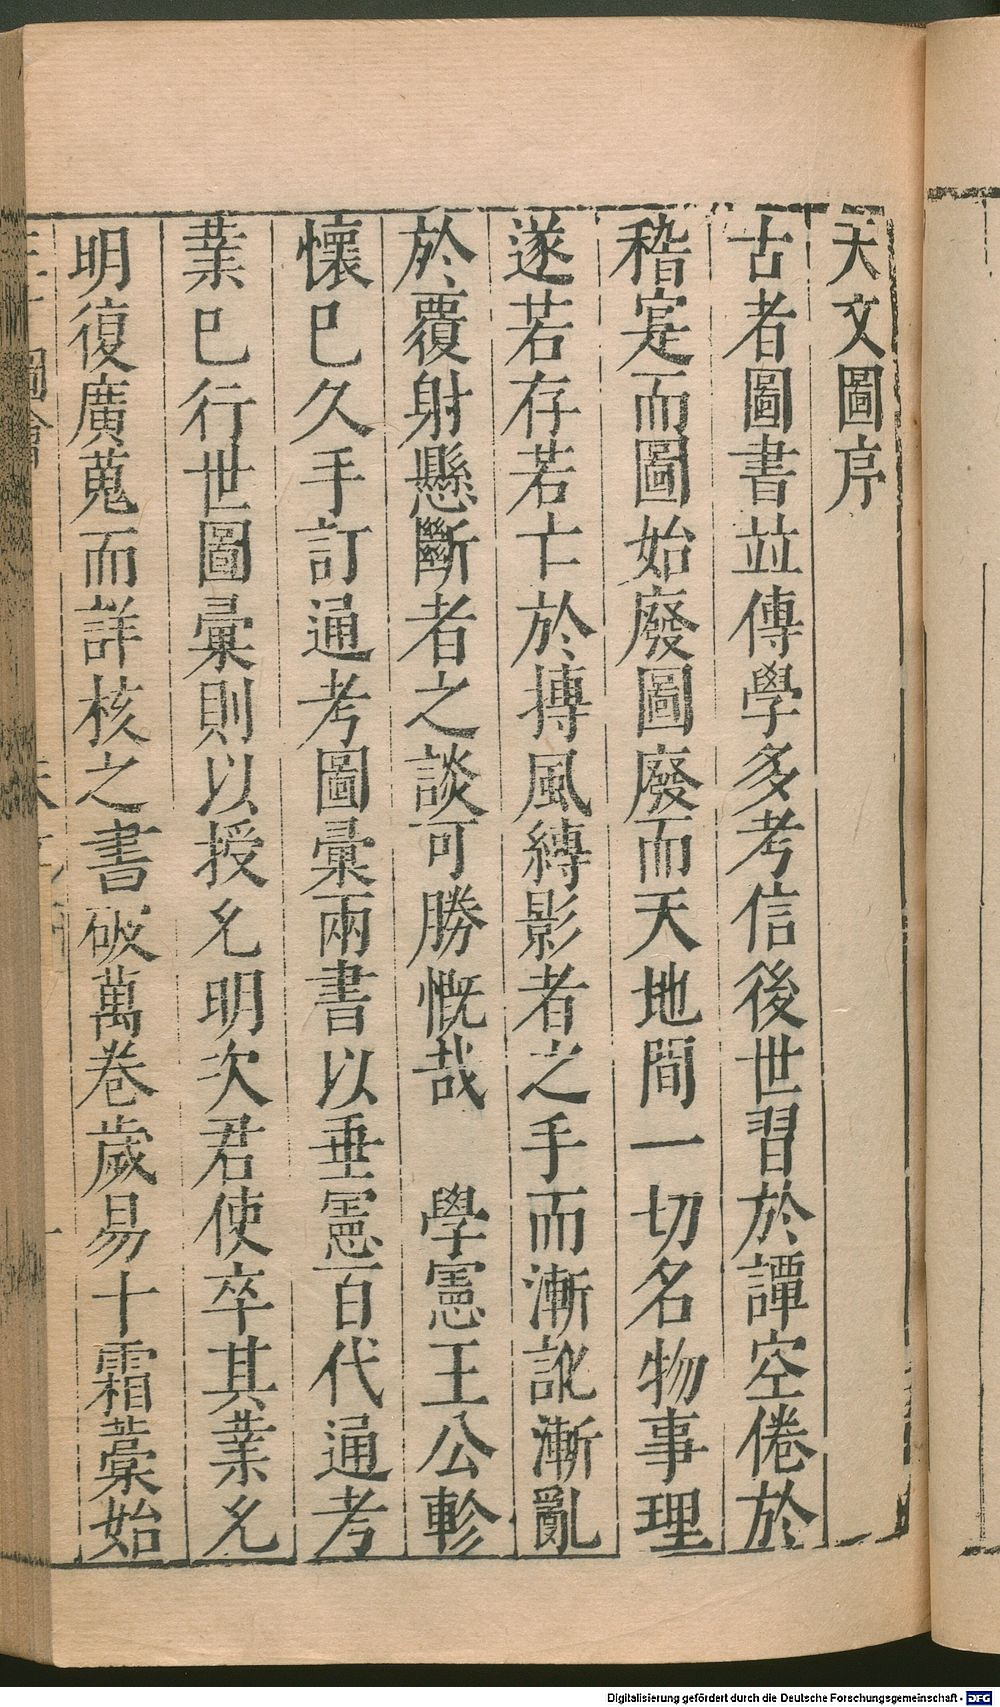 天文圖序
古者圖書並傳學多考信後世習於譚空倦於
稽寔而圖始廢圖廢而天地間一切名物事理
遂若存若亡於摶風縛影者之手而漸訛漸亂
於覆射懸斷者之談可勝慨哉　學憲王公軫
懷已久手訂通考圖彙兩書以垂憲百代通考
業已行世圖彙則以授允明次君使卒其業允
明復廣蒐而詳核之書破萬卷歲易十霜藁始
Digitalisierung gefördert durch die Deutsche Forschungsgemeinschaft - DFG